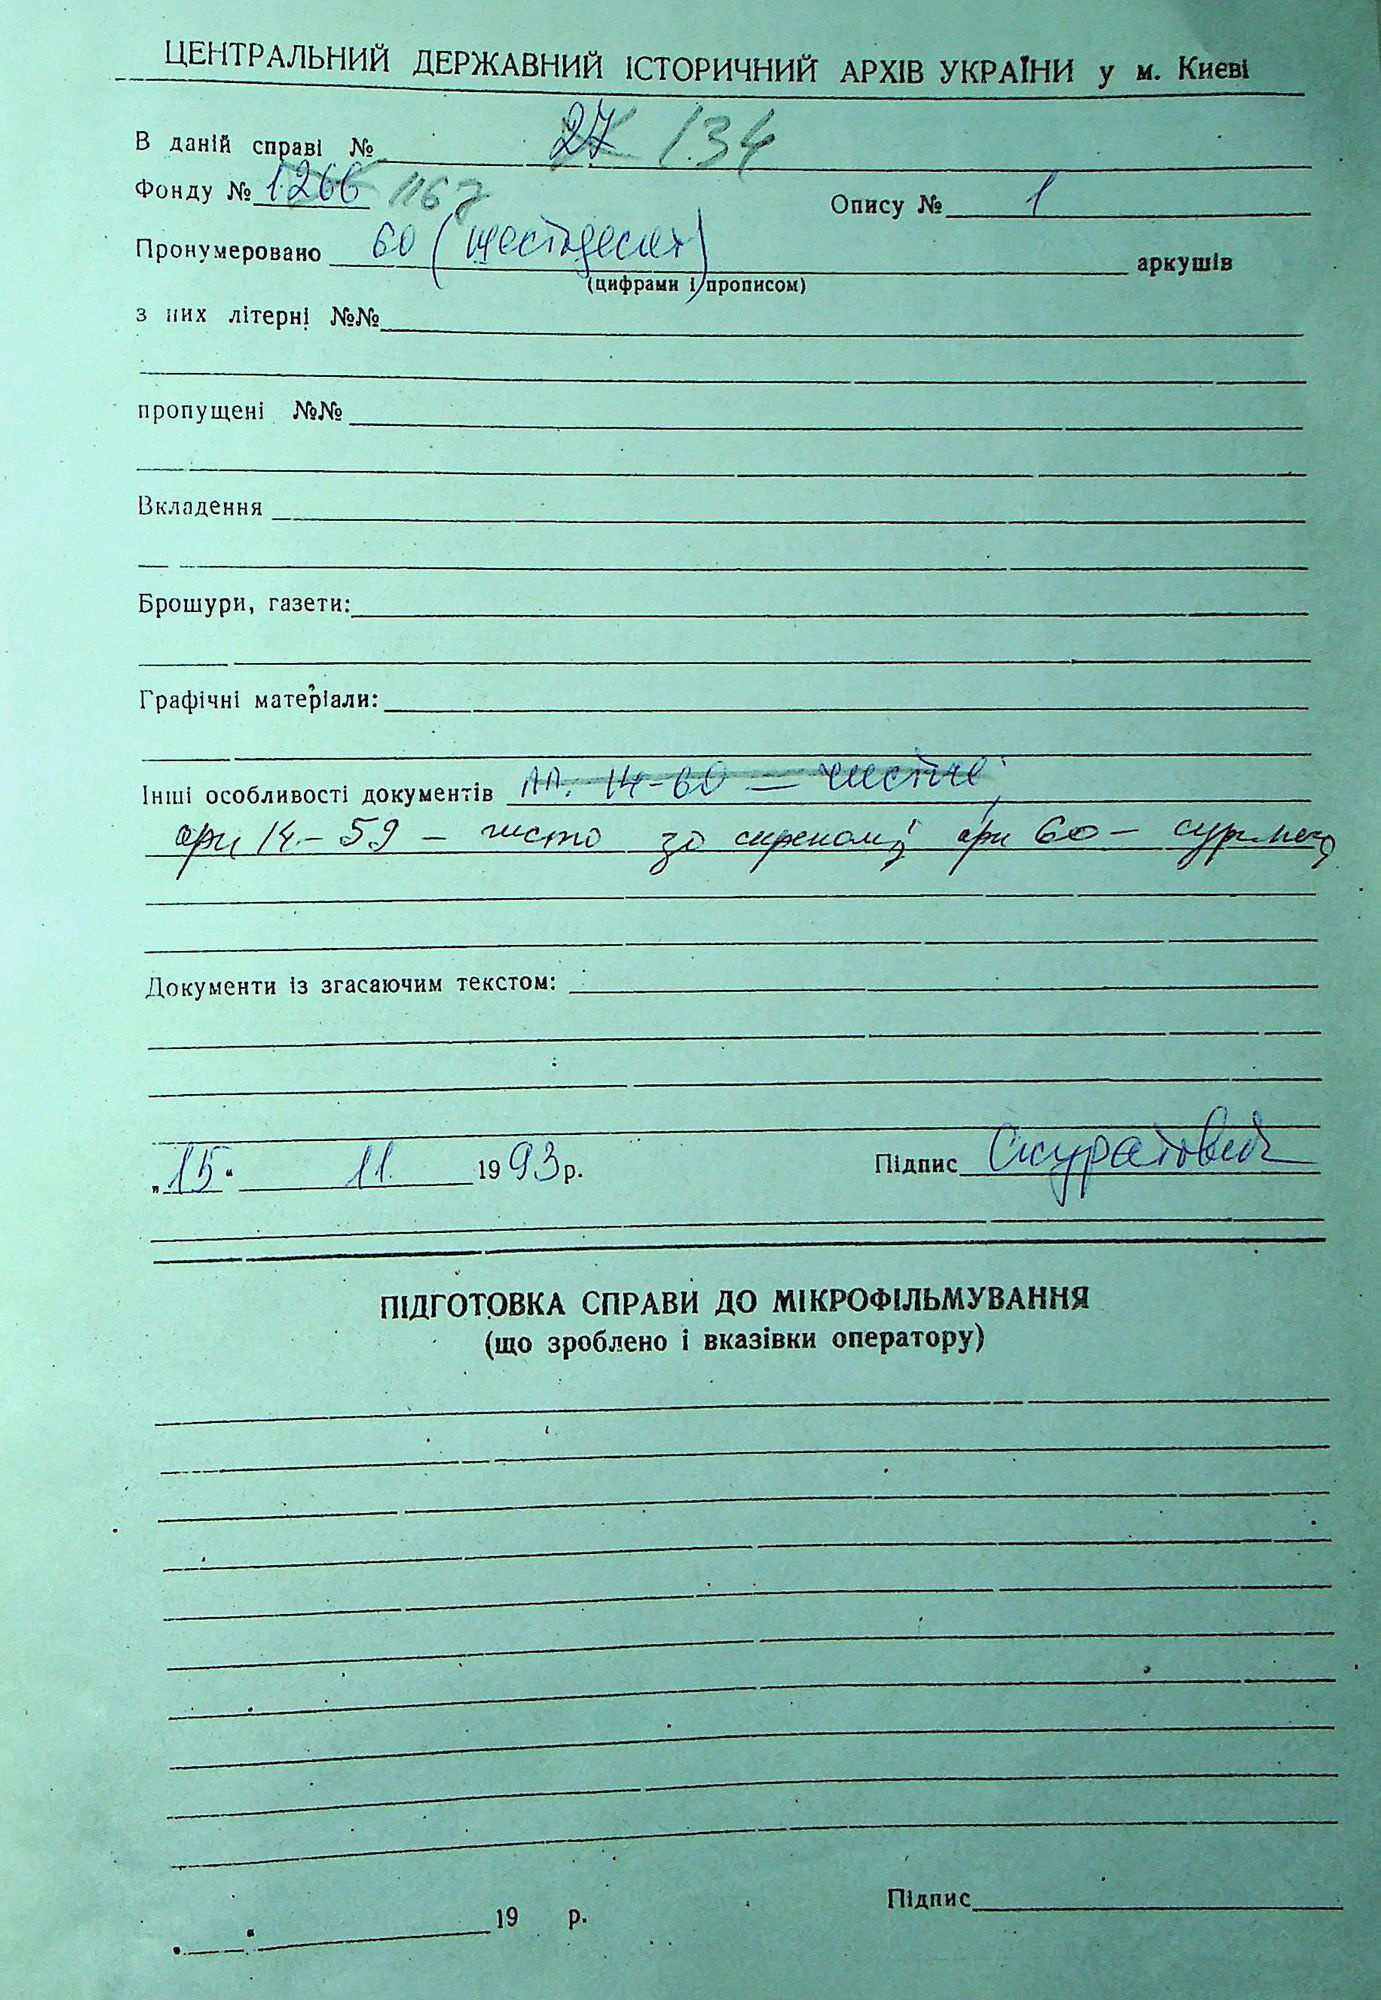 ЦЕНТРАЛЬНИЙ ДЕРЖАВНИЙ ІСТОРИЧНИЙ АРХІВ УКРАЇНИ у м. Києві
В даній справі № 27 134
Фонду № 1266 1167 Опису № 1
Пронумеровано 60 (шестьдесят) аркушів
(цифрами і прописом)
з них літерні №№
пропущені №№
Вкладення
Брошури, газети:
Графічні матеріали:
Інші особливості документів 14-60 — чистые
14-59 — 60 —
Документи із згасаючим текстом:
„15“ 11. 1993 р. Підпис Скуратович
ПІДГОТОВКА СПРАВИ ДО МІКРОФІЛЬМУВАННЯ
(що зроблено і вказівки оператору)
19 р. Підпис